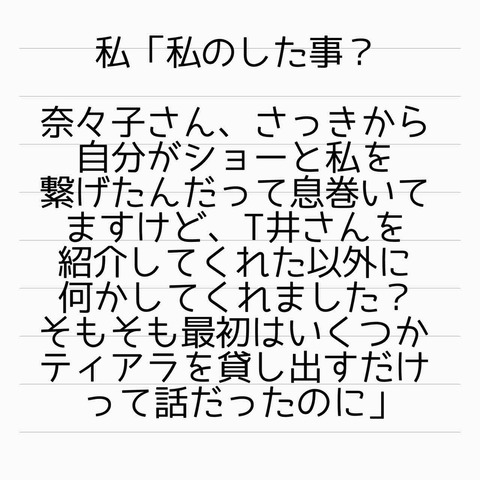 私「私のした事？
奈々子さん、さっきから
自分がショーと私を
繋げたんだって息巻いて
ますけど、T井さんを
紹介してくれた以外に
何かしてくれました？
そもそも最初はいくつか
ティアラを貸し出すだけ
って話だったのに」